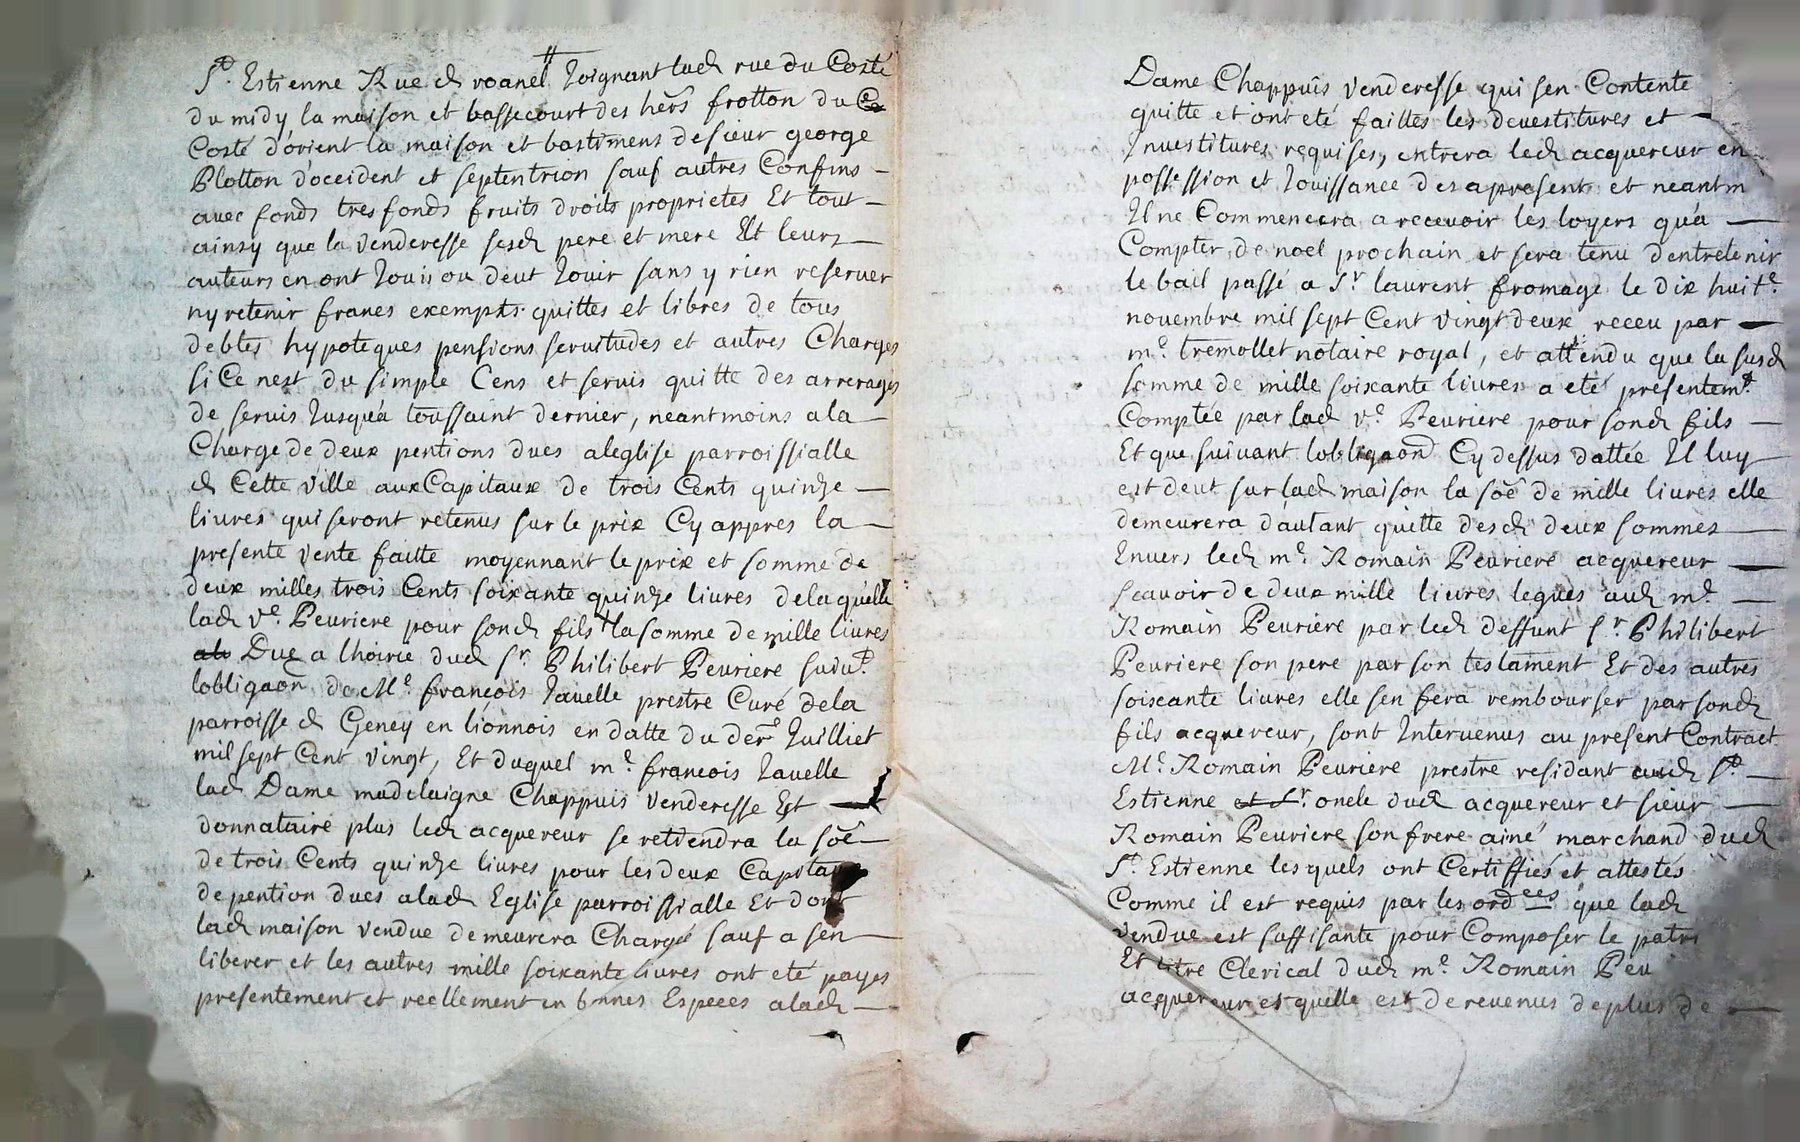 St. Estienne Rue d roanel Joignant lad rue du Costé
du midy la maison et bassecourt des hers frotton du
Costé d'orient la maison et bastimens de sieur george
Plotton d'occident et septentrion sauf autres Confins
avec fonds tres fonds fruits droits proprietes Et tout
ainsy que la venderesse sesd pere et mere Et leurs
auteurs en ont Jouis ou deut Jouir sans y rien reseruer
ny retenir francs exempts quittes et libres de tous
debtes hypoteques pensions seruitudes et autres Charges
si Ce nest du simple Cens et seruis quitte des arrerages
de seruis Jusqu'a toussaint dernier, neantmoins a la
Charge de deux pentions dues a leglise parroissialle
d Cette ville aux Capitaux de trois Cents quinze
liures qui seront retenus sur le prix Cy appres la
presente vente faitte moyennant le prix et somme de
deux milles trois Cents soixante quinze liures de laquelle
lad ve. Peuriere pour sond fils la somme de mille liures
Due a lhoirie dud sr. Philibert Peuriere suiut.
lobligaon de Me. françois Jauelle prestre Curé de la
parroisse d Geney en lionnois en datte du der. Juilliet
mil sept Cent vingt, Et duquel me. francois Jauelle
lad Dame madelaigne Chappuis venderesse Est
donnataire plus led acquereur se rettiendra la soe
de trois Cents quinze liures pour les deux Capitaux
de pention dues a lad Eglise parroissialle Et dont
lad maison vendue demeurera Chargé sauf a sen
liberer et les autres mille soixante liures ont eté payes
presentement et reellement en bonnes Especes a lad
Dame Chappuis venderesse qui sen Contente
quitte et ont eté faittes les deuestitures et
Inuestitures requises, entrera led acquereur en
possession et Jouissance des apresent et neantm
Il ne Commencera a receuoir les loyers qu'a
Compter de noel prochain et sera tenu dentretenir
le bail passé a Sr. laurent fromage le dix huite.
nouembre mil sept Cent vingt deux receu par
me. tremollet notaire royal, et attendu que la susd
somme de mille soixante liures a eté presentemt.
Comptée par lad ve. Peuriere pour sond fils
Et que suiuant lobligaon Cy dessus dattée Il luy
est deut sur lad maison la soe de mille liures elle
demeurera dautant quitte desd deux sommes
Enuers led me. Romain Peuriere acquereur
scauoir de deux mille liures legués aud me.
Romain Peuriere par led deffunt sr. Philibert
Peuriere son pere par son testament Et des autres
soixante liures elle sen fera rembourser par sond
fils acquereur, sont Interuenus au present Contract
Me. Romain Peuriere prestre residant aud St.
Estienne et Sr. oncle dud acquereur et sieur
Romain Peuriere son frere ainé marchand dud
St. Estienne lesquels ont Certiffiés et attestés
Comme il est requis par les ordces que lad
vendue est suffisante pour Composer le patri
Et titre Clerical dud me. Romain Peu
acquereur et quelle est de reuenus de plus de